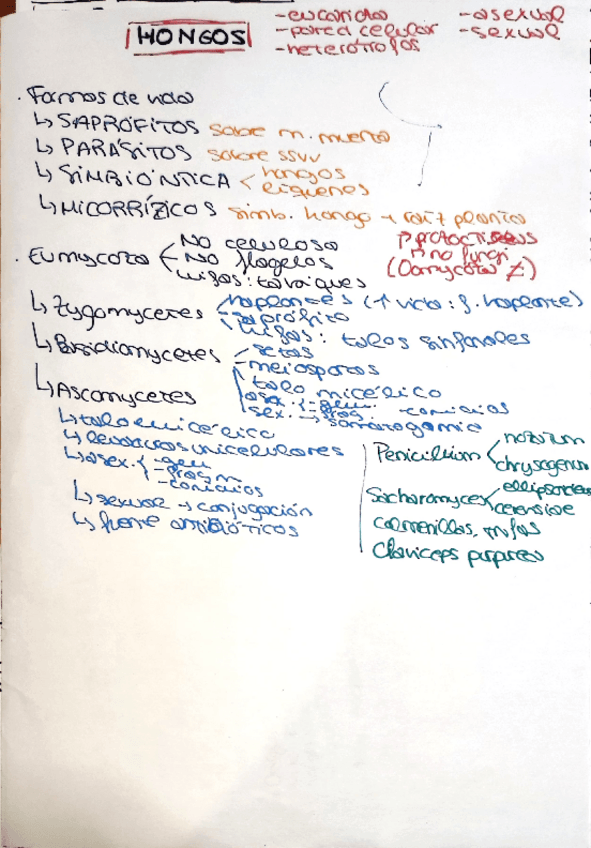 HONGOS
-eucariotas
-pared celular
-heterótrofos
-asexual
-sexual
· Formas de vida
↳ SAPRÓFITOS sobre m. muerta
↳ PARÁSITOS sobre ssvv
↳ SIMBIÓNTICA < hongos
líquenes
↳ MICORRÍZICOS simb. hongo + raíz planta
· Eumycota
No celulosa
- No flagelos
hifas: tabiques
no fungi
(Oomycota
↳ Zygomycetes
haplontes (↑ vida: f. haplonte)
- saprófito
hifas: talos sifonales
↳ Basidiomycetes
- setas
- meiosporas
talo micélico
asex. { - gem.
- frag. - conidios
sex. → somatogamia
↳ Ascomycetes
↳ talo micélico
↳ levaduras unicelulares
↳ asex. { - gem
- fragm
- conidios
↳ sexual → conjugación
↳ fuente antibióticos
Penicillium < notatum
chrysogenum
Sacharomyces < ellipsoides
cerevisiae
colmenillas, trufas
Claviceps purpurea